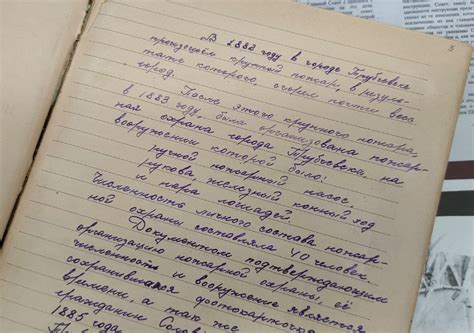 3
В 1882 году в городе Трубчевске
произошел крупный пожар, в резуль-
тате которого, сгорел почти весь
город.
После этого крупного пожара,
в 1883 году, была организована пожар-
ная охрана города Трубчевска, на
вооружении которой было:
ручной пожарный насос,
рукава железный конный ход
и пара лошадей.
Численность личного состава пожар-
ной охраны составляла 40 человек.
Документом подтверждающим
организацию пожарной охраны, её
численность и вооружение является
сохранившаяся фотокарточка
времени, а так же
гражданин
1885 года